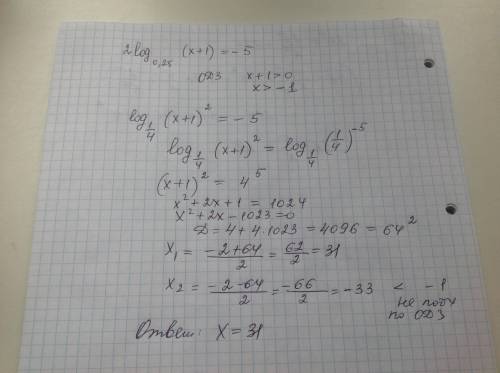 2log₀,₂₅ (x+1) = -5
ОДЗ x+1>0
x>-1
log_{1/4} (x+1)² = -5
log_{1/4} (x+1)² = log_{1/4} (1/4)^{-5}
(x+1)² = 4⁵
x²+2x+1 = 1024
x²+2x-1023=0
D = 4+4·1023 = 4096 = 64²
x₁ = (-2+64)/2 = 62/2 = 31
x₂ = (-2-64)/2 = -66/2 = -33 < -1
не
по ОДЗ
Ответ: x = 31